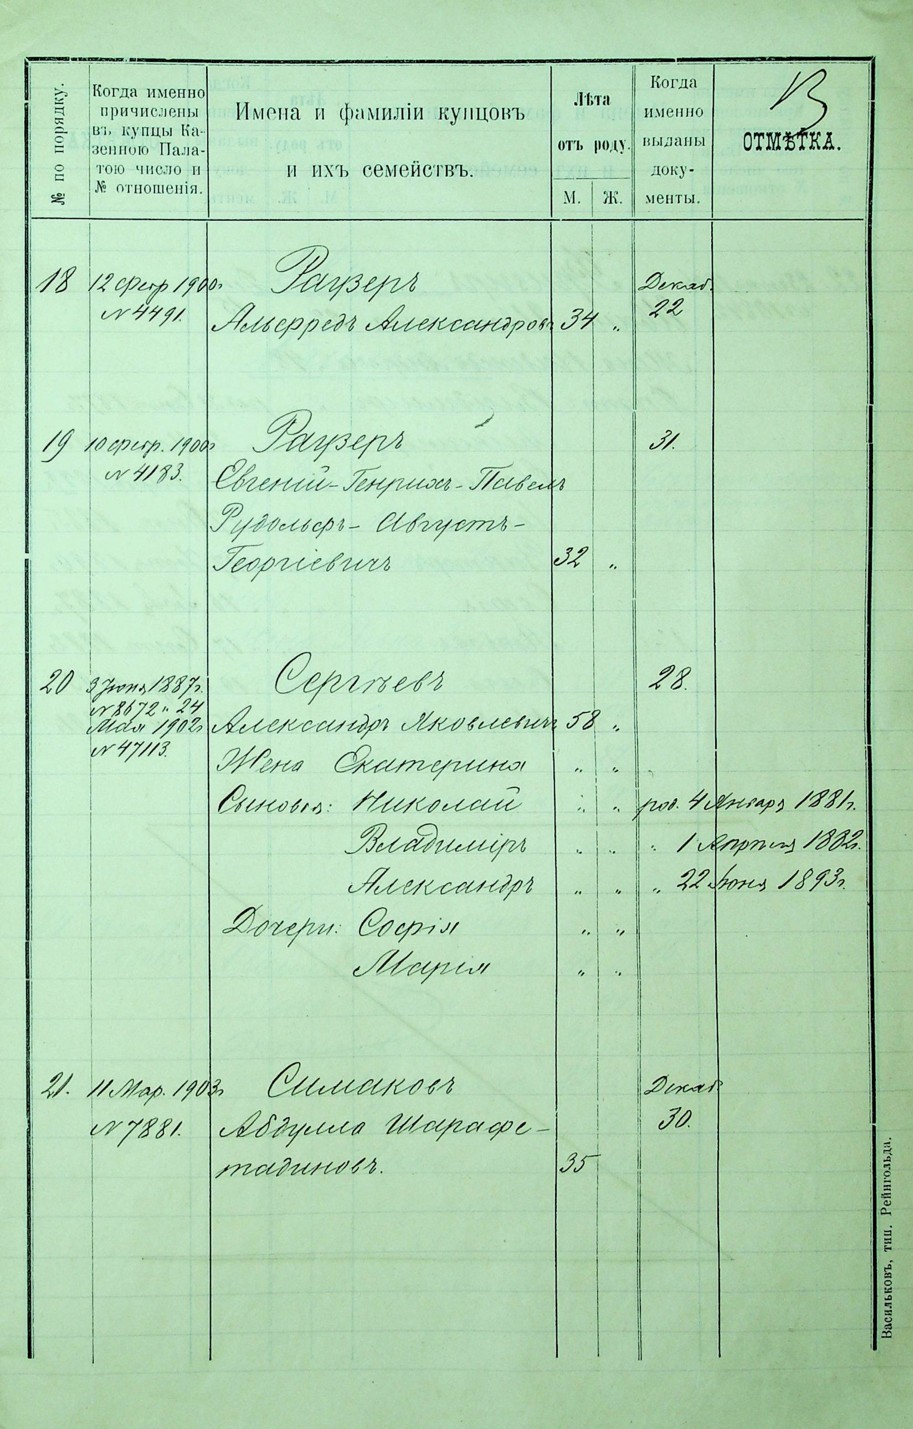 № по порядку.
Когда именно
причислены
въ купцы Ка-
зенною Пала-
тою число и
№ отношенія.
Имена и фамиліи купцовъ
и ихъ семействъ.
Лѣта
отъ роду.
М. Ж.
Когда
именно
выданы
доку-
менты.
ОТМѢТКА.
18 12 февр 1900г Раузеръ Декаб.
№ 4491. Альфредъ Александров 34 „ 22
19 10 февр. 1900г Раузеръ 31.
№ 4183. Евгеній-Генрихъ-Павелъ
Рудольфъ-Августъ-
Георгіевичъ 32 „
20 3 Іюня 1887г. Сергѣевъ 28.
№ 8672 „ 24
Мая 1902г Александръ Яковлевичъ 58 „
№ 47113.
Жена Екатерина „ „
Сыновья: Николай „ „ род. 4 Января 1881г.
Владиміръ „ „ „ 1 Апрѣля 1882г.
Александръ „ „ „ 22 Іюня 1893г.
Дочери: Софія „ „
Марія „ „
21. 11 Мар. 1903г Симаковъ Декаб.
№ 7881. Абдулла Шарафе- 30.
тадиновъ. 35
Васильковъ, тип. Рейнгольда.